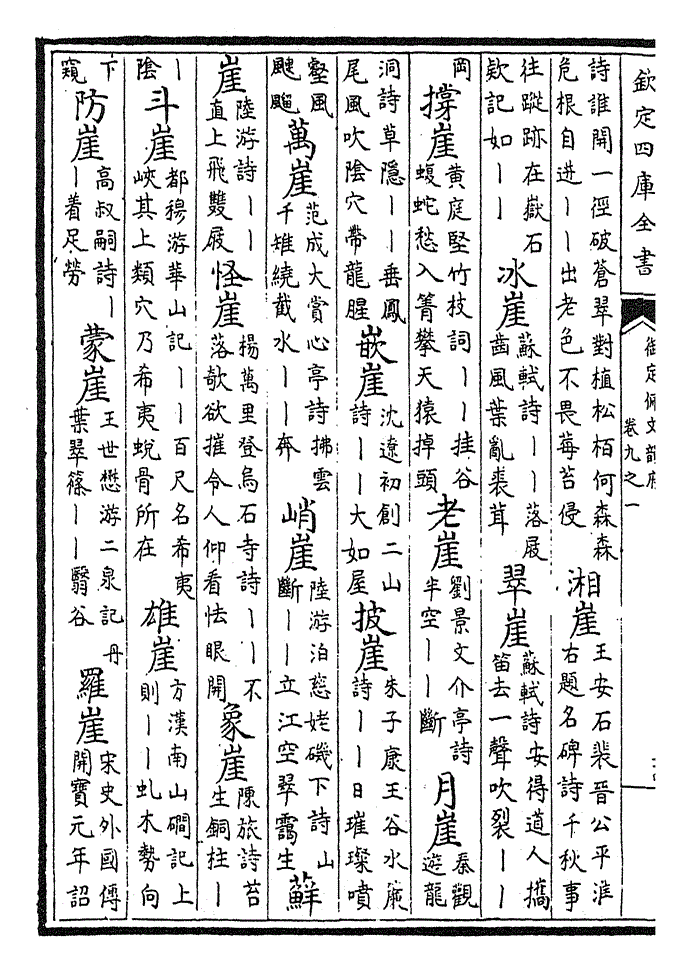 欽定四庫全書
御定佩文韻府
卷九之一
詩誰開一徑破蒼翠對植松栢何森森
危根自迸丨丨出老色不畏莓苔侵
湘崖
王安石裴晉公平淮
右題名碑詩千秋事
往蹤跡在嶽石
欵記如丨丨
冰崖
蘇軾詩丨丨落屐
齒風葉亂裘茸
翠崖
蘇軾詩安得道人攜
笛去一聲吹裂丨丨
岡
撐崖
黃庭堅竹枝詞丨丨拄谷
蝮蛇愁入箐攀天猿掉頭
老崖
劉景文介亭詩
半空丨丨斷
月崖
秦觀
遊龍
洞詩草隱丨丨垂鳳
尾風吹陰穴帶龍腥
嵌崖
沈遼初創二山
詩丨丨大如屋
披崖
朱子康王谷水簾
詩丨丨日璀璨噴
壑風
颼飀
萬崖
范成大賞心亭詩拂雲
千雉繞截水丨丨奔
峭崖
陸游泊慈姥磯下詩山
斷丨丨立江空翠靄生
蘚
崖
陸游詩丨丨
直上飛雙屐
怪崖
楊萬里登烏石寺詩丨丨不
落欹欲摧令人仰看怯眼開
象崖
陳旅詩苔
生銅柱丨
丨
陰
斗崖
都穆游華山記丨丨百尺名希夷
峽其上類穴乃希夷蛻骨所在
雄崖
方漢南山磵記上
則丨丨虬木勢向
下
窺
防崖
高叔嗣詩丨
丨着足勞
蒙崖
王世懋游二泉記丹
葉翠篠丨丨翳谷
羅崖
宋史外國傳
開寶元年詔